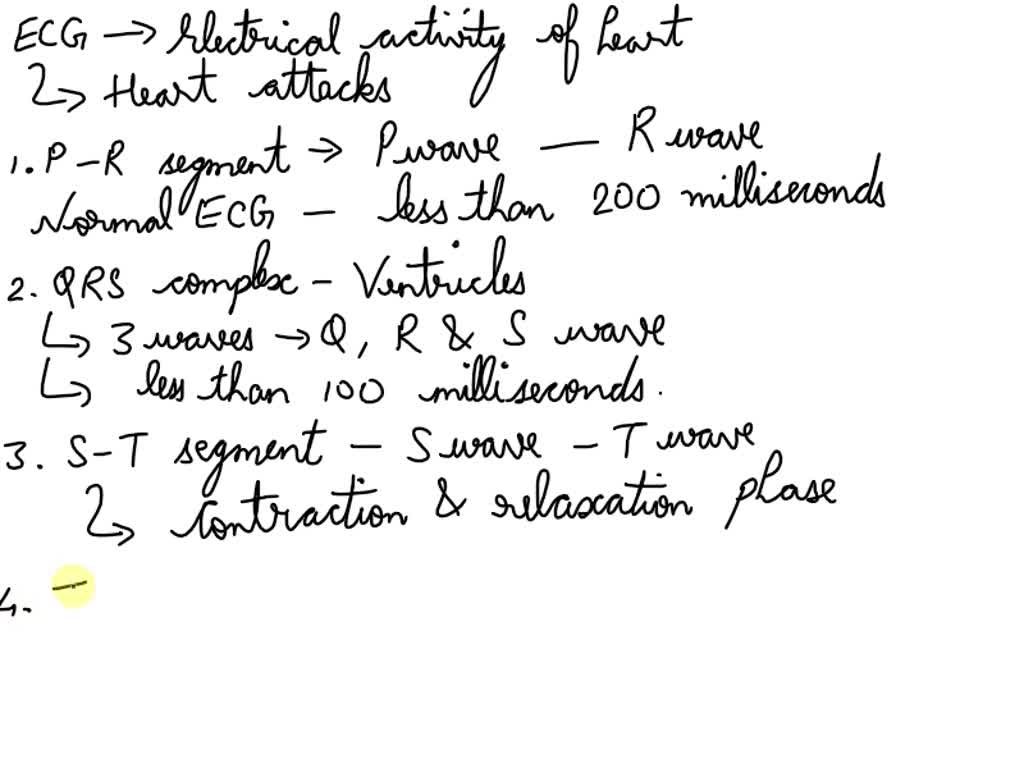 ECG → Electrical activity of heart
↳ Heart attacks
1. P-R segment → P wave — R wave
Normal ECG - less than 200 milliseconds
2. QRS complex - Ventricles
↳ 3 waves → Q, R & S wave
↳ less than 100 milliseconds.
3. S-T segment - S wave - T wave
↳ Contraction & relaxation phase
4.